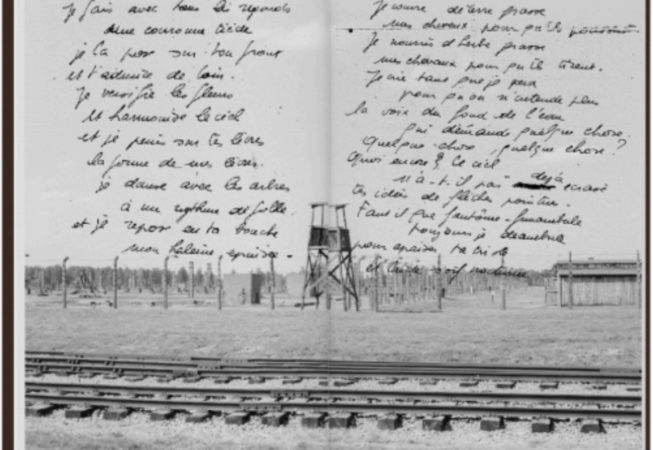 je fais avec tous les regards
une couronne tiède
je la pose sur ton front
et t'admire de loin.
Je versifie les fleurs
et harmonise le ciel
et je peins sur tes lèvres
la forme de mes lèvres.
je danse avec les arbres
à un rythme de folle.
et je repose en ta bouche
mon haleine épuisée.
Je couvre de terre grasse
mes cheveux pour qu'ils poussent.
Je nourris d'herbe grasse
mes chevaux pour qu'ils tirent.
Je crie tant que je peux
pour qu'on n'entende plus
la voix du fond de l'eau
qui demande quelque chose.
Quelque chose, quelque chose ?
Quoi encore ? Ce ciel
n'a-t-il pas déjà écrasé
tes idées de flèche pointue.
Faut-il que fantôme-funambule
toujours je déambule
pour apaiser ta
et